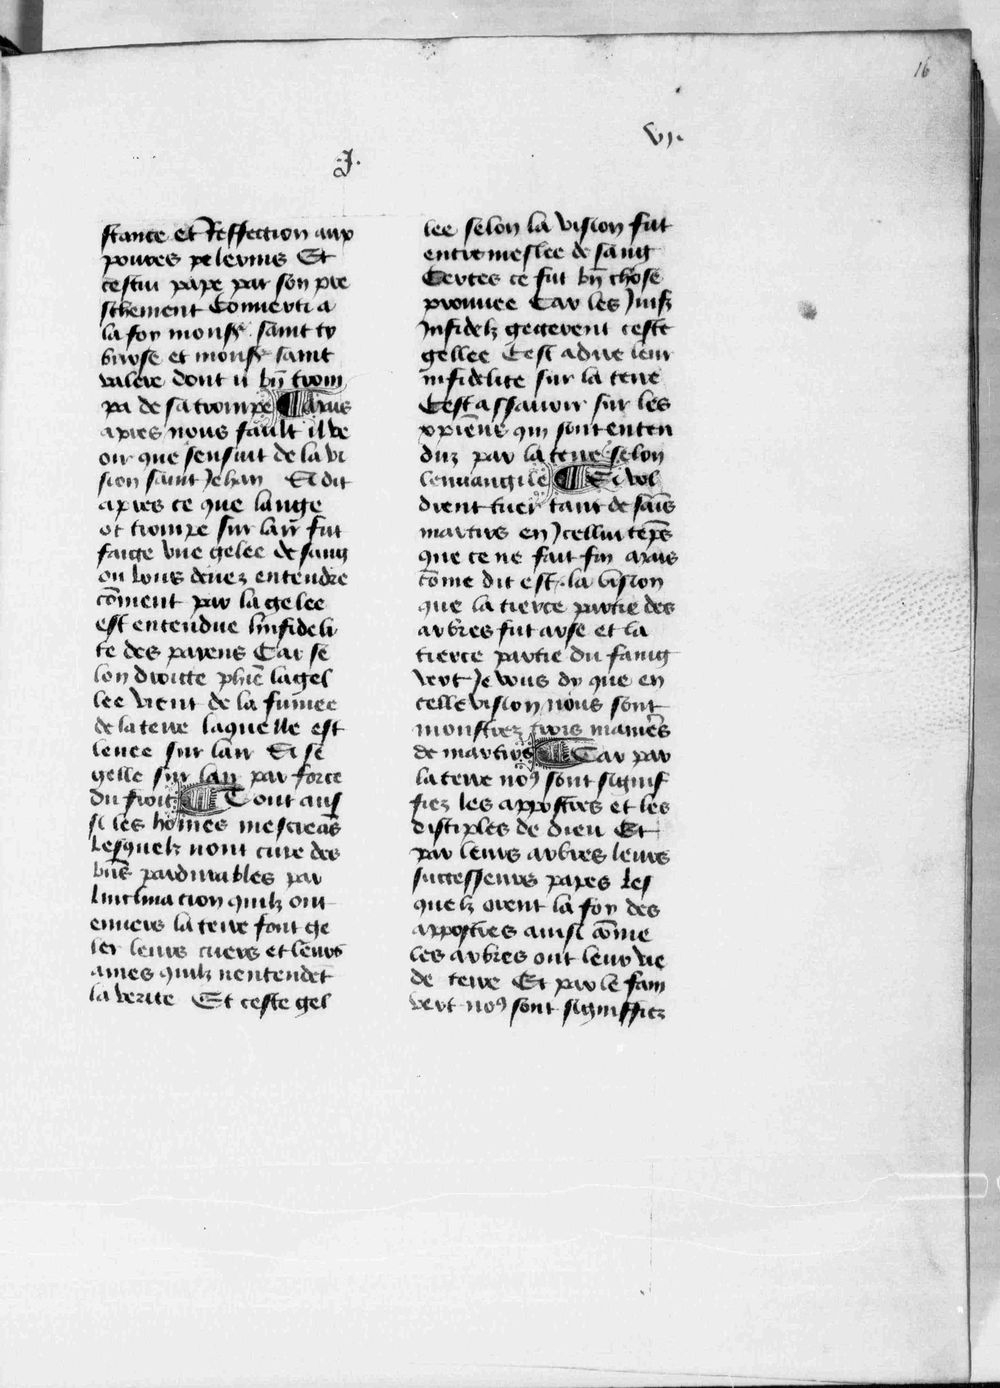 16
VJ.
J.
stance et Reffection aux
poures pelerins Et
cestui pape par son pre
schement Conuerti a
la foy monsr. saint ty
burse et monsr saint
valere dont il bn̄ trom
pa de sa trompe Mais
apres nous fault il ve
oir que sensuit de la vi
sion saint Jehan Et dit
apres ce que lange
ot trompe sur lair fut
faicte vne gelee de sang
ou vous deuez entendre
cōment par la gelee
est entendue linfideli
te des parens Car se
lon droitte phie lagel
lee vient de la fumee
de la terre laquelle est
leuee sur lair Et se
gelle sur lair par force
du froit Tout aus
si les hōmes mescreās
Lesquelz nont cure des
biēs pardurables par
Linclinacion quilz ont
enuers la terre font ge
ler leurs cuers et leurs
ames quilz nentendēt
la verite Et ceste gel
lee selon la vision fut
entremeslee de sang
Certes ce fut bn̄ chose
prouuee Car les Juifz
Jnfidelz gegerent ceste
gellee Cest adire leur
infidelite sur la terre
Cest assauoir sur les
xp̄iens qui sont enten
duz par la terre selon
leuuangile Et vol
drent tuer tant de sāīs
martirs en Jcellui tēps
que ce ne fait fin Mais
cōme dit est la vision
que la tierce partie des
arbres fut arse et la
tierce partie du faing
vert Je vous dy que en
celle vision nous sont
monstrez trois manieres
de martirs Car par
la terre nous sont signif
fiez les appostres et les
disciples de dieu Et
par leurs arbres leurs
successeurs papes Les
quelz orent la foy des
appostres ainsi cōme
les arbres ont leur vie
de terre Et par le fain
vert nous sont signiffiez